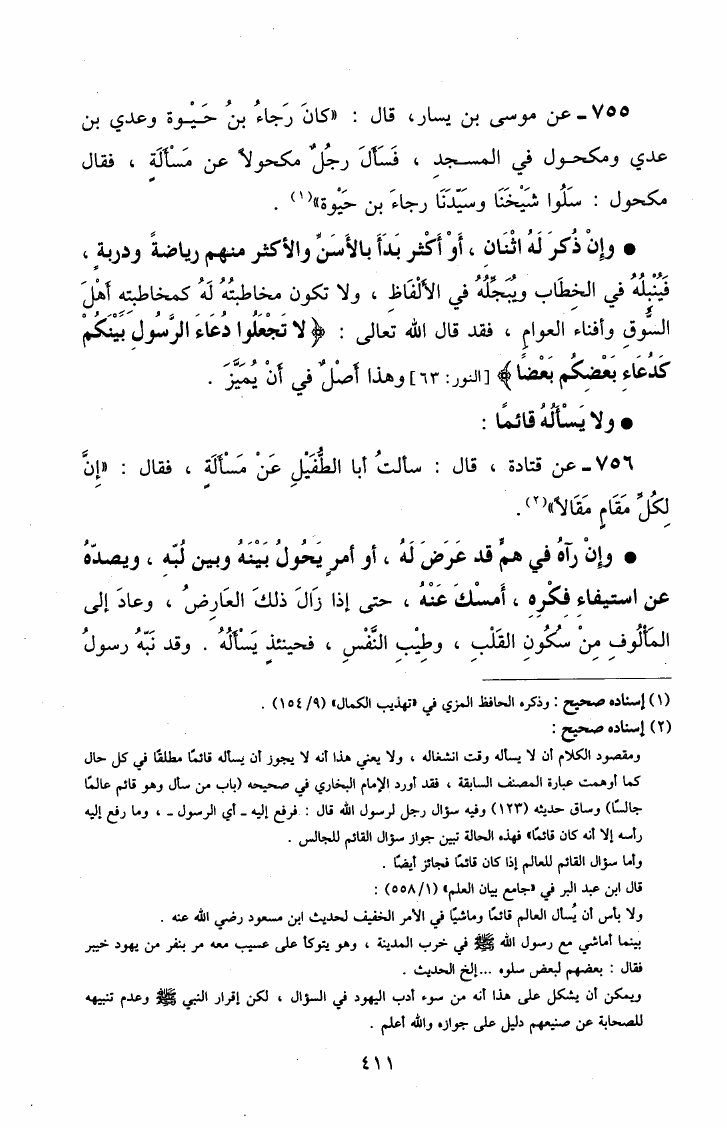 ٧٥٥ ـ عن موسى بن يسار، قال : «كانَ رَجاءُ بنُ حَـيْـوة وعدي بن
عدي ومكحـول في المسـجدِ ، فَسَأَلَ رجُلٌ مكحولاً عن مَسْأَلَةٍ ، فقال
مكحول : سَلُوا شَيْخَنَا وسَيِّدَنَا رجاءَ بن حَيْوة»(١) .
● وإنْ ذُكرَ لَهُ اثْنَان ، أوْ أكْثر بَدَأ بالأسَنِّ والأكثر منهم رياضةً ودربةٍ ،
فَيُنْبِلُهُ في الخِطَاب ويُبَجِّلُهُ في الألْفَاظِ ، ولا تكون مخاطبتُهُ لَهُ كمخاطبتِهِ أهْلَ
السُّوقِ وأفناء العوامِ ، فقد قال الله تعالى : ﴿ لا تَجْعَلُوا دُعَاءَ الرَّسُولِ بَيْنَكُمْ
كَدُعَاءِ بَعْضِكُم بَعْضًا ﴾ [النور: ٦٣] وهذا أصْلٌ في أنْ يُمَيَّزَ .
● ولا يَسْأَلُهُ قائمًا :
٧٥٦ ـ عن قتادة ، قال : سألتُ أبا الطُّفَيْلِ عَنْ مَسْأَلَةٍ ، فقال : «إنَّ
لِكُلِّ مَقَامٍ مَقَالاً»(٢).
● وإنْ رآهُ في همٍّ قد عَرَضَ لَهُ ، أو أمرٍ يَحُولُ بَيْنَهُ وبين لُبّه ، ويصدّهُ
عن استيفاءِ فِكْرِه ، أمسْكَ عَنْهُ ، حتى إذا زَالَ ذلكَ العَارِضُ ، وعادَ إلى
المَألُوفِ مِنْ سُكُونِ القَلْبِ ، وطِيْبِ النَّفْسِ ، فحينئذٍ يَسألُهُ . وقد نَبَّهُ رسولُ
(١) إسناده صحيح : وذكره الحافظ المزي في «تهذيب الكمال» (٩/ ١٥٤) .
(٢) إسناده صحيح :
ومقصود الكلام أن لا يسأله وقت انشغاله ، ولا يعني هذا أنه لا يجوز أن يسأله قائمًا مطلقًا في كل حال
كما أوهمت عبارة المصنف السابقة ، فقد أورد الإمام البخاري في صحيحه (باب من سأل وهو قائم عالمًا
جالسًا) وساق حديثه (١٢٣) وفيه سؤال رجل لرسول الله قال : فرفع إليه ـ أي الرسول ـ ، وما رفع إليه
رأسه إلا أنه كان قائمًا» فهذه الحالة تبين جواز سؤال القائم للجالس .
وأما سؤال القائم للعالم إذا كان قائمًا فجائز أيضًا .
قال ابن عبد البر في «جامع بيان العلم» (١/ ٥٥٨) :
ولا بأس أن يُسأل العالم قائمًا وماشيًا في الأمر الخفيف لحديث ابن مسعود رضي الله عنه .
بينما أماشي مع رسول الله ﷺ في خرب المدينة ، وهو يتوكأ على عسيب معه مر بنفر من يهود خيبر
فقال : بعضهم لبعض سلوه ...إلخ الحديث .
ويمكن أن يشكل على هذا أنه من سوء أدب اليهود في السؤال ، لكن إقرار النبي ﷺ وعدم تنبيهه
للصحابة عن صنيعهم دليل على جوازه والله أعلم .
٤١١